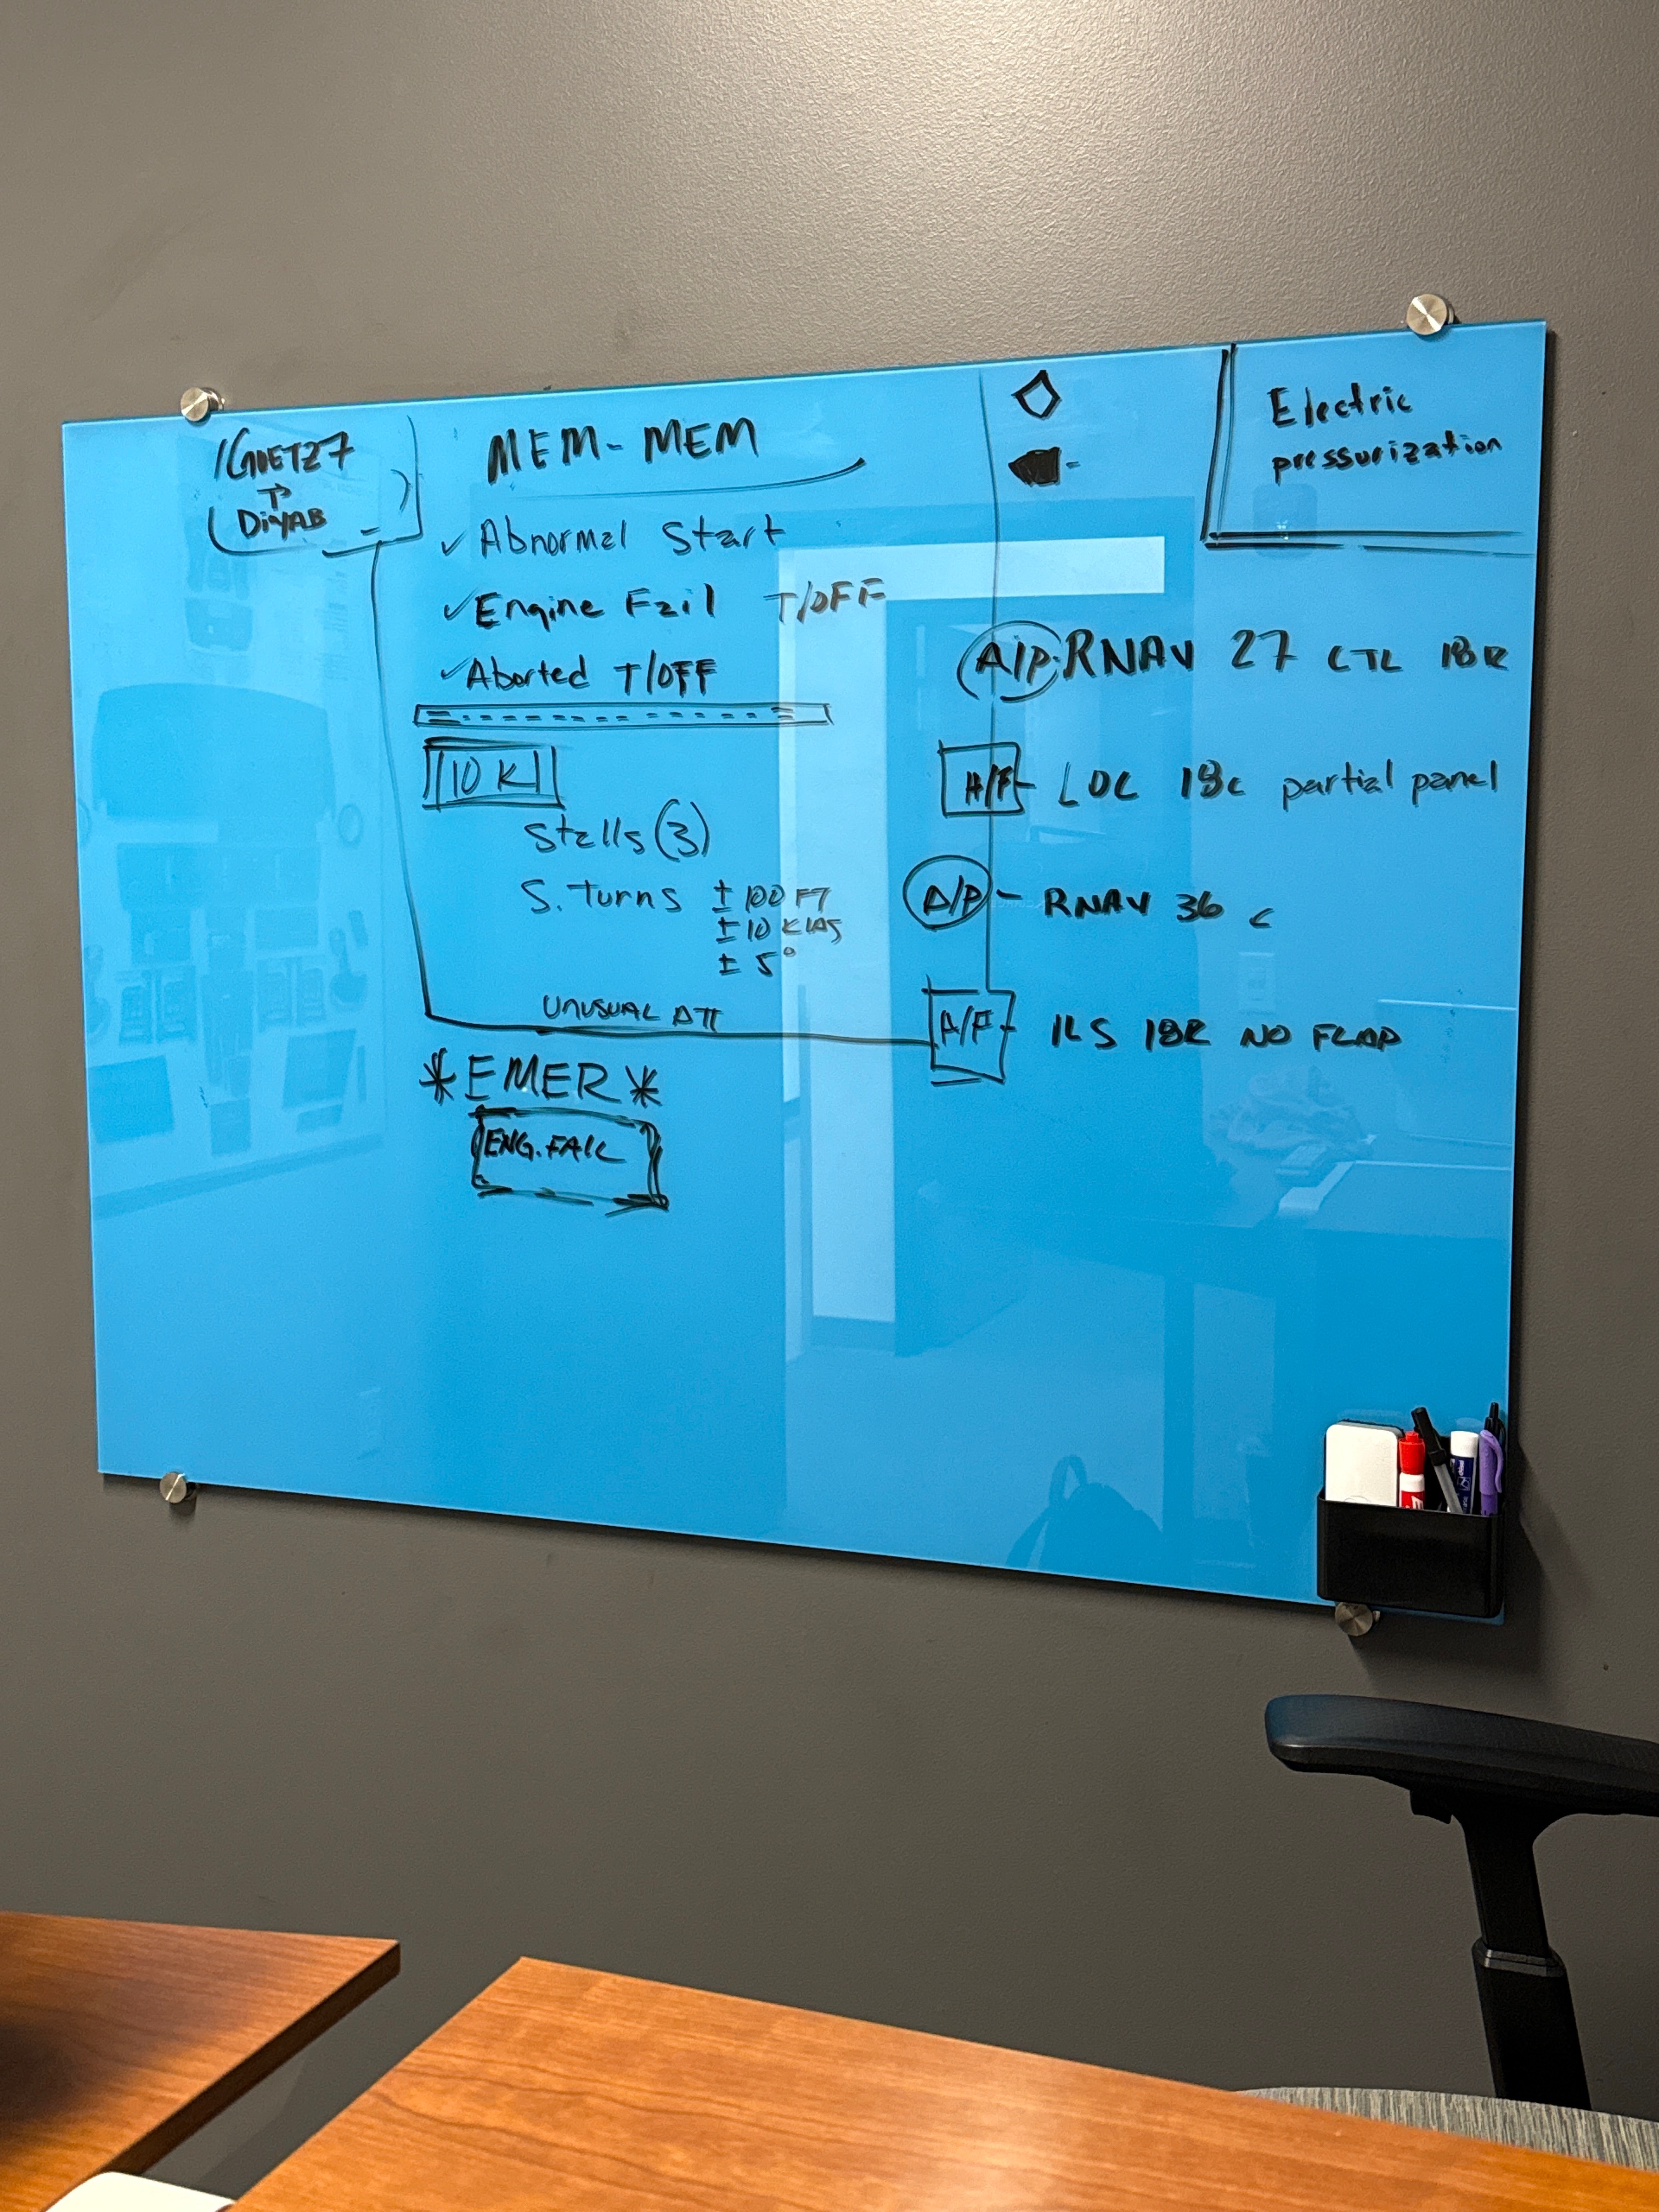 DiYAB
MEM-MEM
✓ Abnormal Start
✓ Engine Fail T/OFF
✓ Aborted T/OFF
10 K
Stalls (3)
S. Turns ± 100 FT
± 10 KIAS
± 5°
UNUSUAL ATT
*EMER*
ENG. FAIL
Electric
pressurization
A/P - RNAV 27 CTL 18R
H/F - LOC 18C partial panel
A/P - RNAV 36 C
ILS 18R NO FLAP